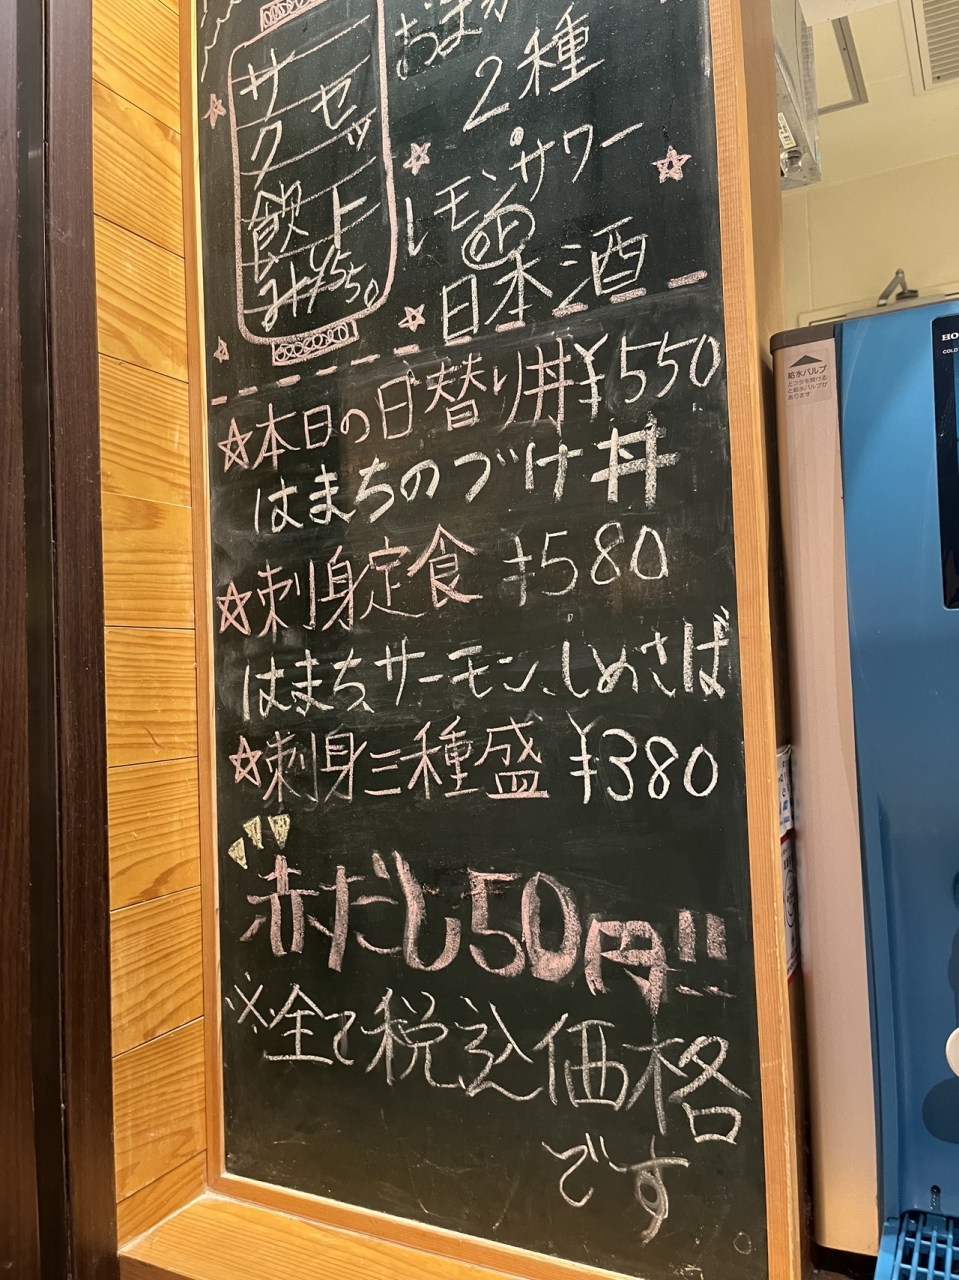 サク飲み
セット
¥550
おまか
2種
レモンサワー
or
日本酒
☆本日の日替り丼¥550
はまちのづけ丼
☆刺身定食 ¥580
はまち、サーモン、しめさば
☆刺身三種盛 ¥380
赤だし50円!!
※全て税込価格
です
給水バルブ
HO
COLD